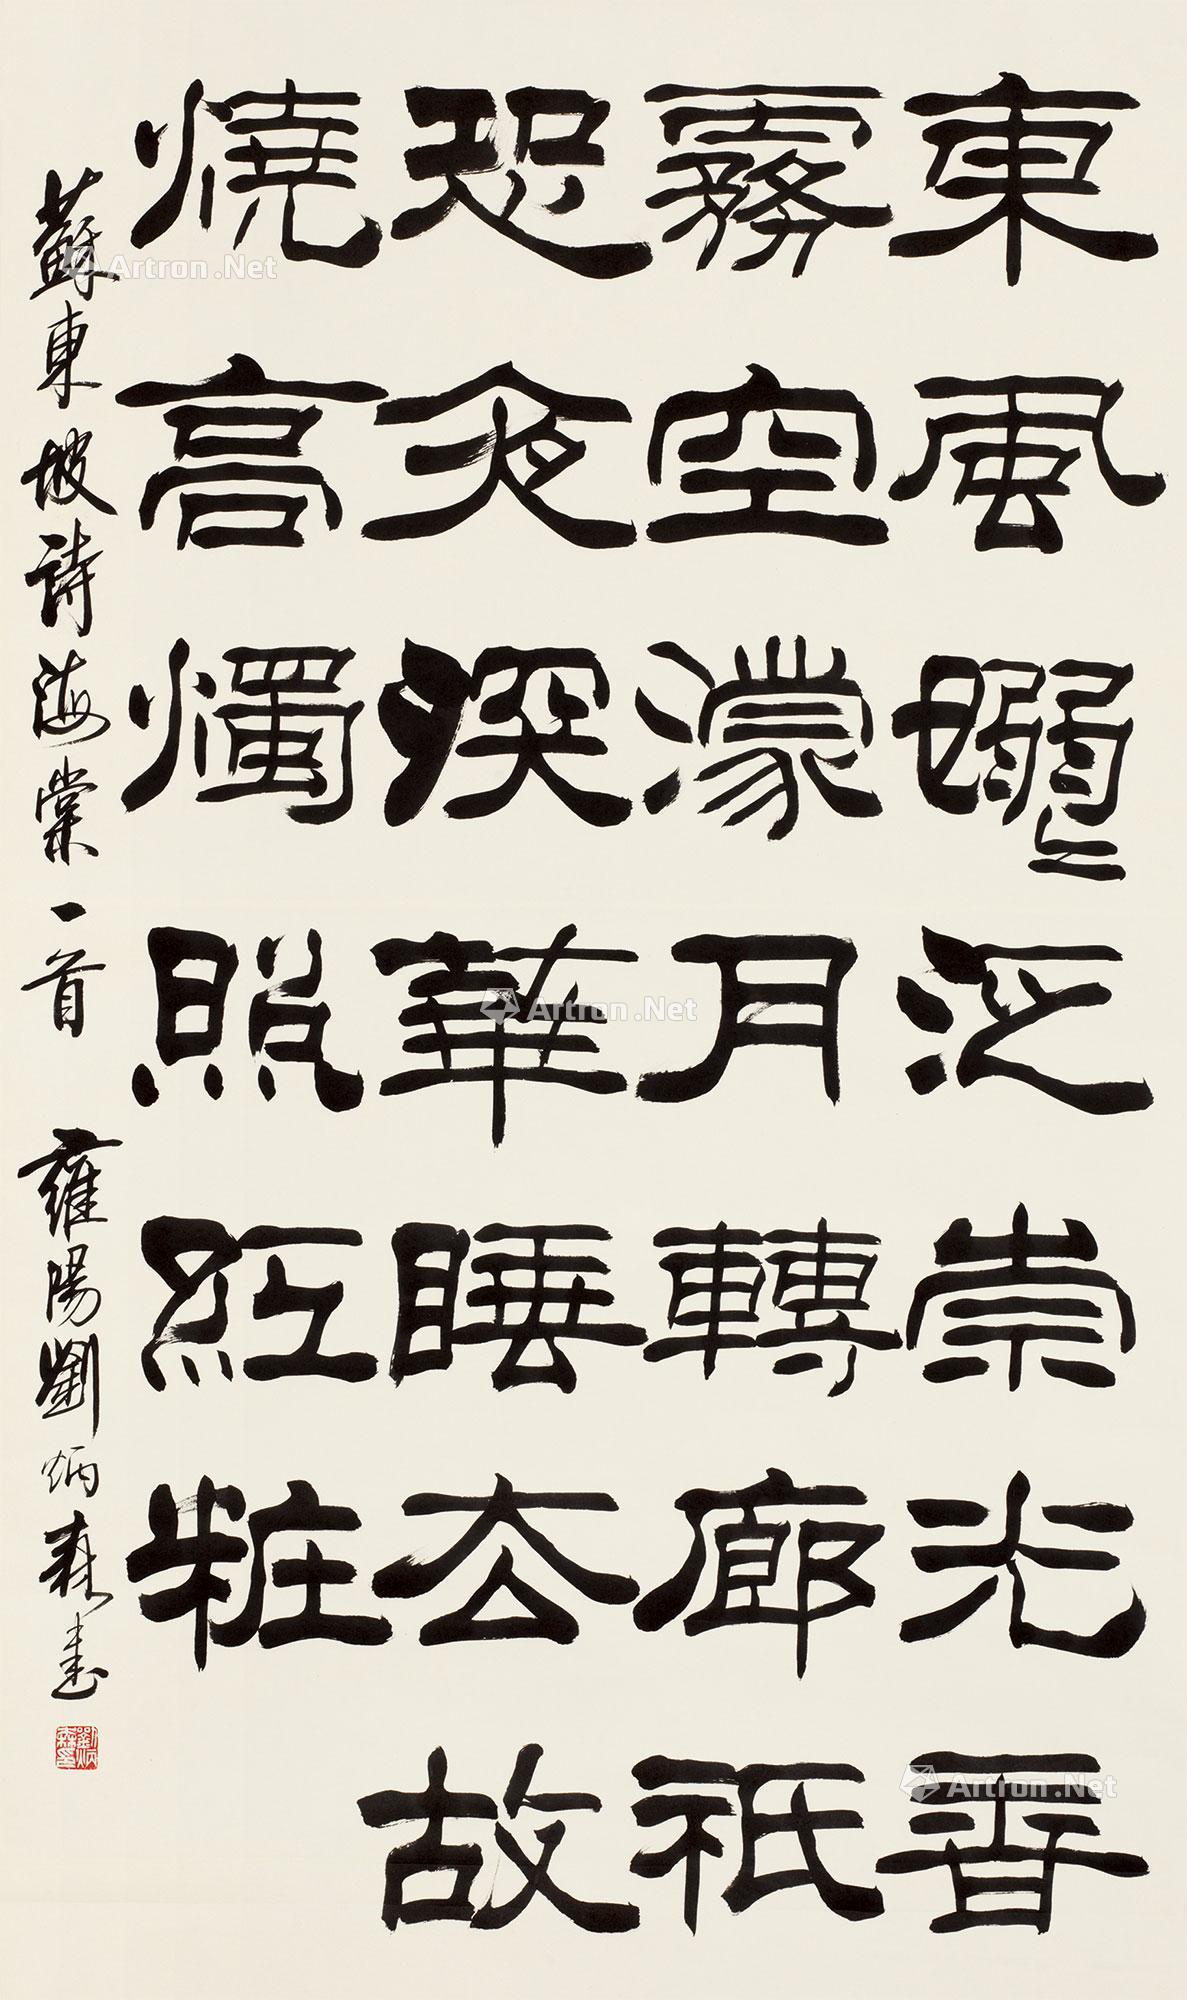 東風嫋〻泛崇光香
霧空濛月轉廊祇
恐夜深華睡去故
燒高燭照紅粧
蘇東坡詩海棠一首 雍陽劉炳森書
劉炳森印
Artron.Net
Artron.Net
Artron.Net